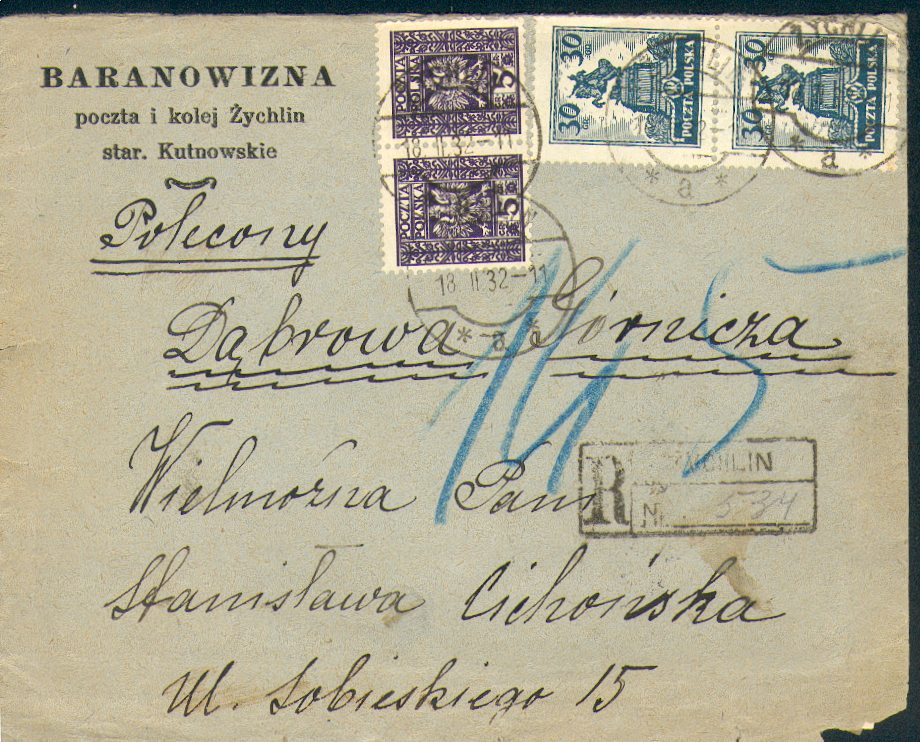 BARANOWIZNA
poczta i kolej Żychlin
star. Kutnowskie
POCZTA POLSKA 5
POCZTA POLSKA 5
30 30 POCZTA POLSKA
30 30 POCZTA POLSKA
ŻYCHLIN
18 II 32-11
* a *
18 II 32-11
* a
* a *
* a *
Polecony
Dąbrowa Górnicza
145
Wielmożna Pani
R ŻYCHLIN
Nr. 534
Stanisława Cichońska
Ul. Sobieskiego 15